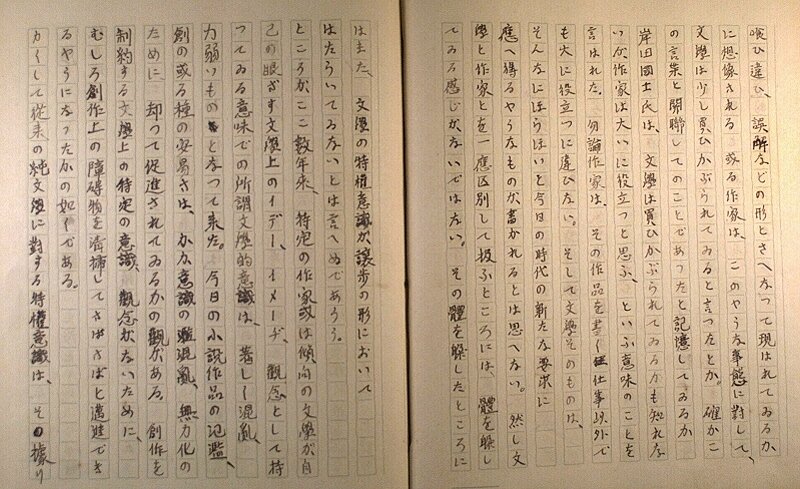 喰ひ違ひ、誤解などの形とさへなつて現はれてゐるか、
に想像される。或る作家は、このやうな事態に対して、
文學は少し買ひかぶられてゐると言つたとか。確かこ
の言葉と関聯してのことであつたと記憶してゐるか
岸田國士氏は、文學は買ひかぶられてゐるかも知れな
いが作家は大いに役立つと思ふ、といふ意味のことを
言はれた。勿論作家は、その作品を書く仕事以外で
も大に役立つに違ひない。そして文學そのものは、
そんなにほうほいと今日の時代の新たな要求に
應へ得るやうなものが書かれるとは思へない。然し文
學と作家とを一應区別して扱ふところには、體を躱し
てゐる感じがないではない。その體を躱したところに
はまた、文學の特権意識が譲歩の形において
はたらいてゐないとは言へぬであらう。
ところがここ数年来、特定の作家或は傾向の文學が自
己の眼ざす文學上のイデー、イメーヂ、観念として持
つてゐる意味での所謂文學的意識は、著しく混乱、
力弱いものとなつて来た。今日の小説作品の氾濫、
創の或る種の安易さは、かか意識の混乱、無力化の
ために 却つて促進されてゐるかの観がある。創作を
制約する文學上の特定の意識、観念がないために、
むしろ創作上の障碍物を清掃してさばさばと邁進でき
るやうになつたかの如くである。
かくして従来の純文學に対する特権意識は、その據り